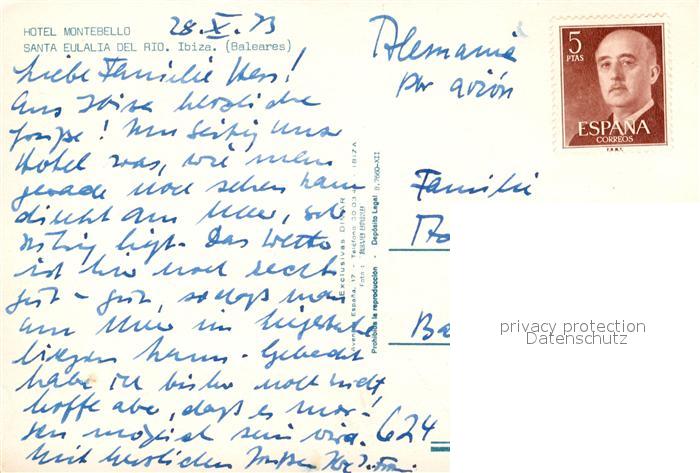 HOTEL MONTEBELLO
SANTA EULALIA DEL RIO. Ibiza. (Baleares)
28.X.73
Liebe Familie Hess!
Aus Ibiza herzliche
Grüße!
Hotel was, wie man
gerade noch sehen kann
direkt am Meer, sehr
liegt. Das Wetter
ist hier noch recht
gut - gut, sodaß man
am Meer im Liegestuhl
liegen kann. Gebadet
habe ich bisher noch nicht,
hoffe aber, daß es mor-
gen möglich sein wird.
Mit herzlichen Grüßen
Exclusivas DINAR
Avenida España, 17 - Teléfono 30 03 4 - IBIZA
Foto:
Prohibida la reproducción - Depósito Legal B. 7660-XII
Alemania
por avión
5
PTAS
ESPAÑA
CORREOS
F.N.M.T.
Familie
Ba
624
privacy protection
Datenschutz